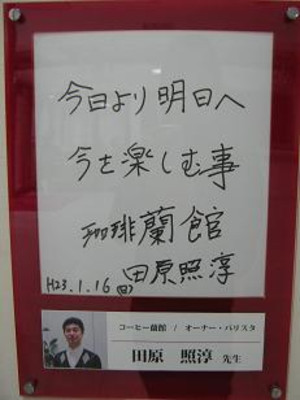 今日より明日へ
今を楽しむ事
珈琲蘭館
H23.1.16(日) 田原照淳
コーヒー蘭館 / オーナー・バリスタ
田原 照淳 先生